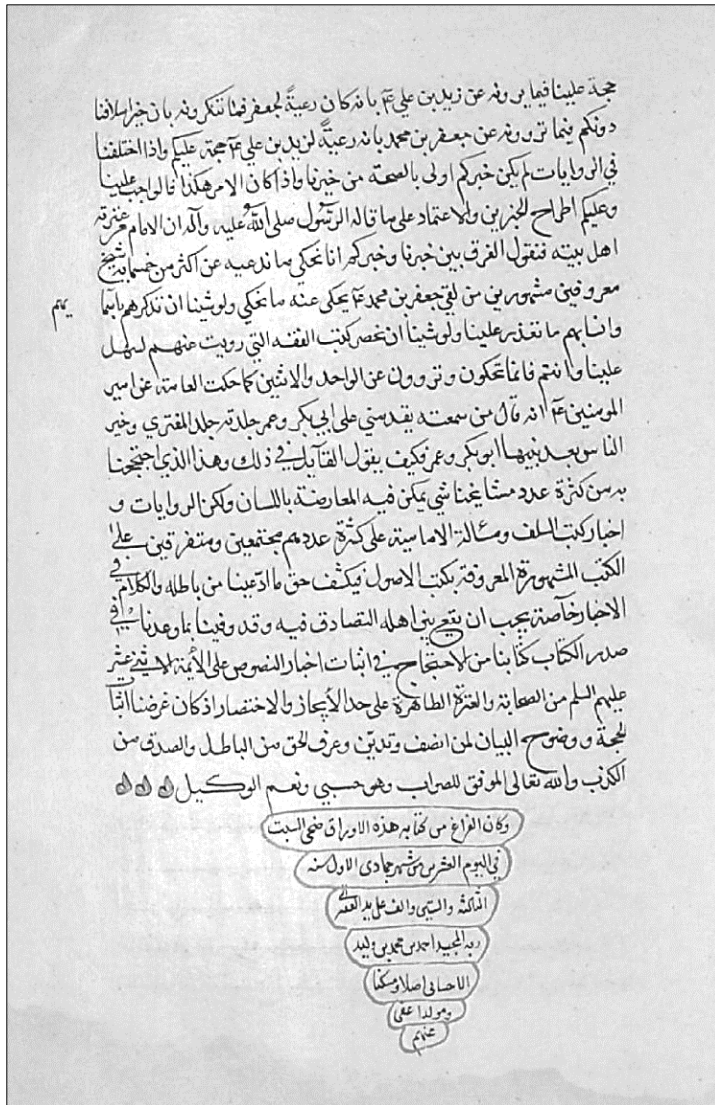 حجة علينا فيما يروونه عن زيد بن علي ع م بانه كان رعيةً لجعفر فما تنكرونه بان خبر اسلافنا
دونكم فيما تروونه عن جعفر بن محمد بانه رعيةً لزيد بن علي ع م حجة عليكم واذا اختلفنا
في الروايات لم يكن خبركم اولى بالصحة من خبرنا واذا كان الامر هكذا فالواجب علينا
وعليكم اطراح الخبرين والاعتماد على ما قاله الرسول صلى الله عليه وآله ان الامام من عترته
اهل بيته فنقول الفرق بين خبرنا وخبركم انا نحكي ما ندعيه عن اكثر من خمسماية شيخ
معروفين مشهورين من لقي جعفر بن محمد ع م يحكي عنه ما نحكي ولو شينا ان نذكرهم باسما
يهم
وانسابهم ما تعذر علينا ولو شينا ان نحصر كتب الفقه التي رويت عنهم لسهل
علينا وانتم فانما تحكون وتروون عن الواحد والاثنين كما حكت العامة عن امير
المومنين ع م انه قال من سمعته يقدمني على ابي بكر وعمر جلدته جلد المفتري وخير
الناس بعد نبيها ابو بكر وعمر فكيف يقول القايل في ذلك وهذا الذي احتججنا
به من كثرة عدد مشايخنا شي يمكن فيه المعارضة باللسان ولكن الروايات و
اخبار كتب السلف ومسالة الامامية على كثرة عددهم مجتمعين ومتفرقين على
الكتب المشهورة المعروفة بكتب الاصول فيكشف حق ما ادعينا من باطله والكلام في
الاخبار خاصة يجب ان يقع بين اهله التصادق فيه وقد وفينا بما وعدنا في
صدر الكتاب كتابنا من الاحتجاج في اثبات اخبار النصوص على الأئمة الاثني عشر
عليهم السلم من الصحابة والعترة الطاهرة على حد الأيجاز والاختصار اذ كان غرضنا اثبا
للحجة ووضوح البيان لمن انصف وتدين وعرف الحق من الباطل والصدق من
الكذب والله تعالى الموفق للصواب وهو حسبي ونعم الوكيل
وكان الفراغ من كتابه هذه الاوراق ضحى السبت
في اليوم العشرين من شهر جمادى الاول سنه
الثالثه والستين والف على يد الفقير الى
ربه المجيد احمد بن محمد بن وليد
الاحسائي اصلا ومسكنا
ومولدا عفى
عنهم